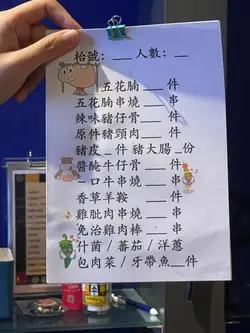 枱號：___ 人數：___
五花腩 ___ 件
五花腩串燒 ___ 串
辣味豬仔骨 ___ 件
原件豬頸肉 ___ 件
豬皮 _ 件 豬大腸 _ 份
醬醃牛仔骨 ___ 件
一口牛串燒 ___ 串
香草羊鞍 ___ 件
雞肶肉串燒 ___ 串
免治雞肉棒 ___ 串
什菌 / 蕃茄 / 洋蔥
包肉菜 / 牙帶魚 __件